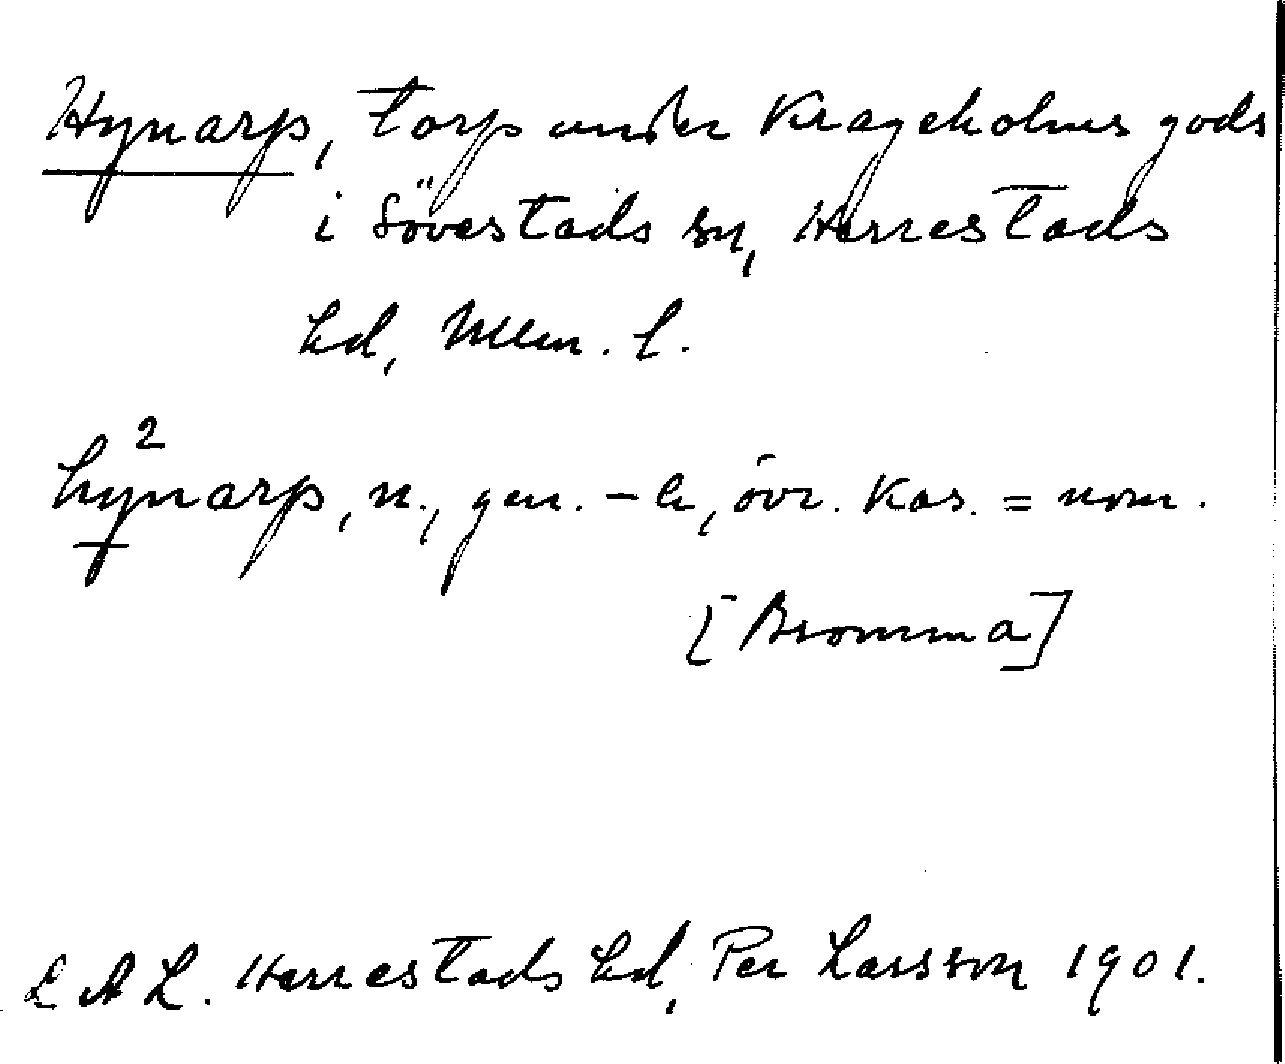 Hynarp, torp under Krageholms gods
i Sövestads sn, Herrestads
hd, Mlm. l.
hy²narp, n., gen. -s, övr. kas. = nom.
[Bromma]
LAL. Herrestads hd, Per Larsson 1901.